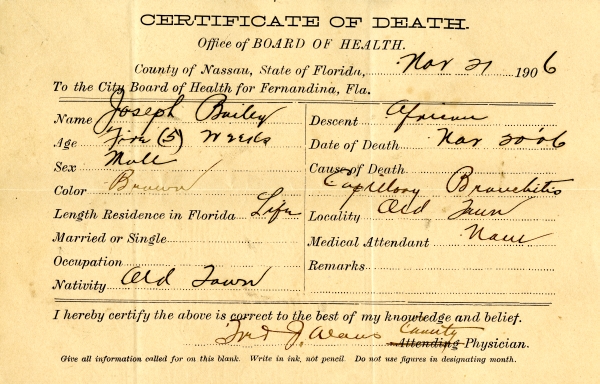 CERTIFICATE OF DEATH.
Office of BOARD OF HEALTH.
County of Nassau, State of Florida, Nov 21 1906
To the City Board of Health for Fernandina, Fla.
Name Joseph Bailey
Age Five (5) Weeks
Sex Male
Color Brown
Length Residence in Florida Life
Married or Single
Occupation
Nativity Old Town
Descent African
Date of Death Nov 20 '06
Cause of Death
Capillary Bronchitis
Locality Old Town
Medical Attendant None
Remarks
I hereby certify the above is correct to the best of my knowledge and belief.
Fred J. County Attending Physician.
Give all information called for on this blank. Write in ink, not pencil. Do not use figures in designating month.